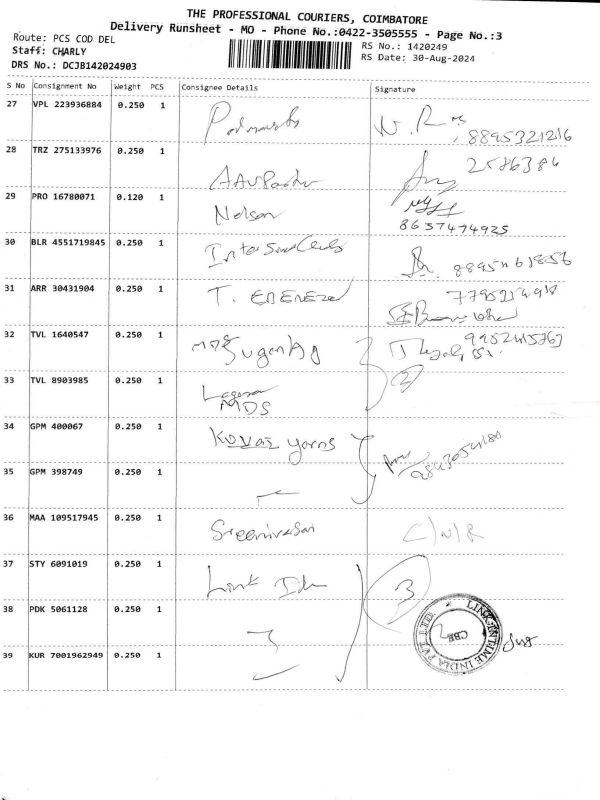 THE PROFESSIONAL COURIERS, COIMBATORE
Delivery Runsheet - MO - Phone No.:0422-3505555 - Page No.:3
Route: PCS COD DEL
Staff: CHARLY
DRS No.: DCJB142024903
RS No.: 1420249
RS Date: 30-Aug-2024
S No Consignment No Weight PCS Consignee Details Signature
27 VPL 223936884 0.250 1
8895321216
28 TRZ 275133976 0.250 1
2586386
29 PRO 16780071 0.120 1 Nelson
8637474925
30 BLR 4551719845 0.250 1
31 ARR 30431904 0.250 1 T. EBENEZER
32 TVL 1640547 0.250 1
33 TVL 8903985 0.250 1
MDS
2
34 GPM 400067 0.250 1 KOVAS Yarns
35 GPM 398749 0.250 1
36 MAA 109517945 0.250 1 Sreenivasan C/N/R
37 STY 6091019 0.250 1 Link
3
38 PDK 5061128 0.250 1
LINK INTIME INDIA PVT LTD.
CBE
39 KUR 7001962949 0.250 1